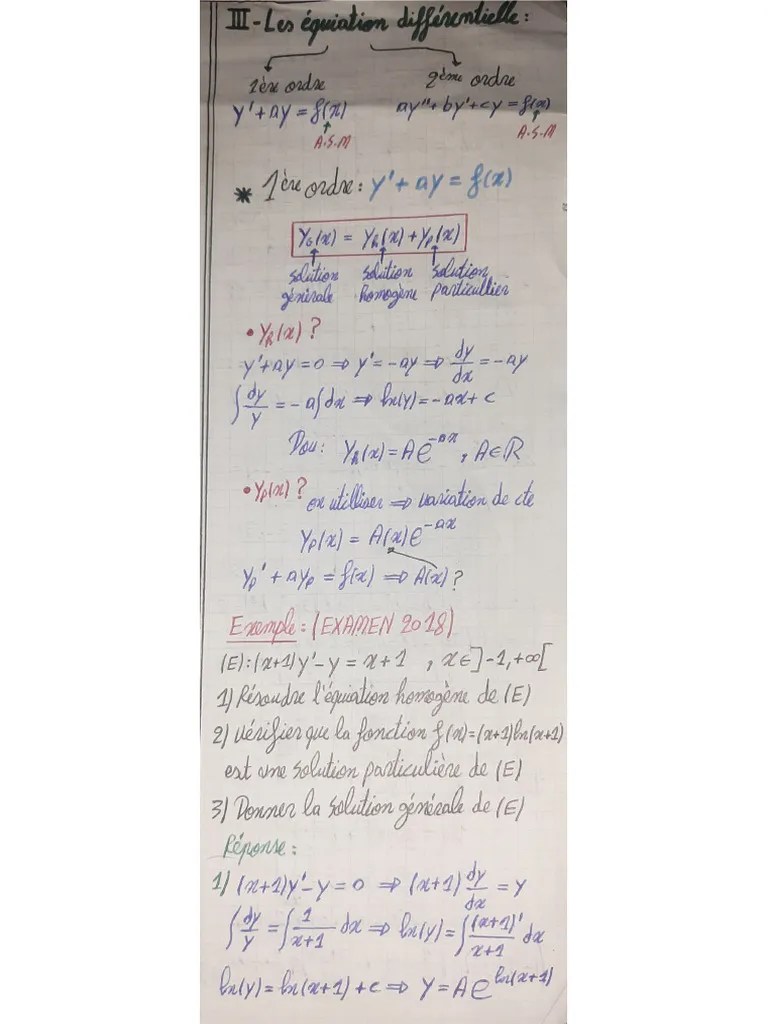 III - Les équiation différentielle :
1ère ordre 2ème ordre
y' + ay = f(x) ay'' + by' + cy = f(x)
A.S.M A.S.M
* 1ère ordre : y' + ay = f(x)
YG(x) = Yh(x) + Yp(x)
solution solution solution
générale homogène particullier
• Yh(x) ?
y' + ay = 0 ⇒ y' = -ay ⇒ dy/dx = -ay
∫ dy/y = -a∫dx ⇒ ln(y) = -ax + c
Dou : Yh(x) = A e^-ax , A ∈ ℝ
• Yp(x) ? on utilliser ⇒ variation de cte
Yp(x) = A(x) e^-ax
Yp' + ayp = f(x) ⇒ A(x) ?
Exemple : (EXAMEN 2018)
(E) : (x+1) y' - y = x+1 , x ∈ ]-1, +∞[
1) Résoudre l'équiation homogène de (E)
2) Vérifier que la fonction f(x) = (x+1)ln(x+1)
est une solution particulière de (E)
3) Donner la solution générale de (E)
Réponse :
1) (x+1)y' - y = 0 ⇒ (x+1) dy/dx = y
∫ dy/y = ∫ 1/(x+1) dx ⇒ ln(y) = ∫ (x+1)'/(x+1) dx
ln(y) = ln(x+1) + c ⇒ y = A e^ln(x+1)